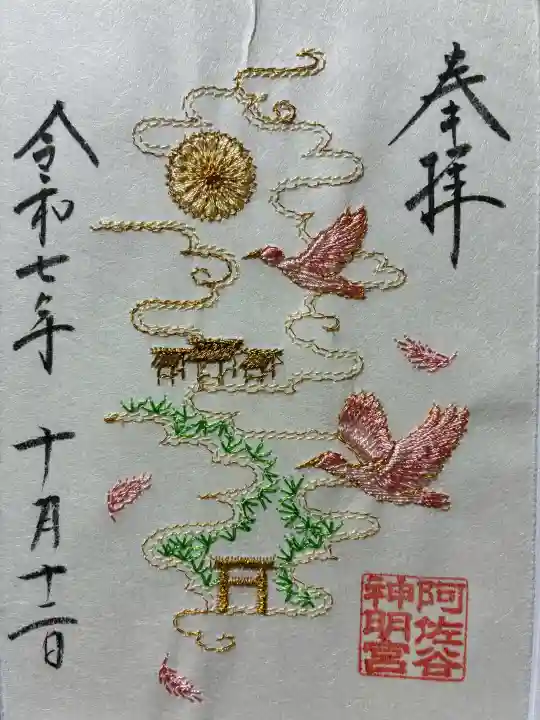 奉拝
阿佐谷
神明宮
令和七年 十月十二日